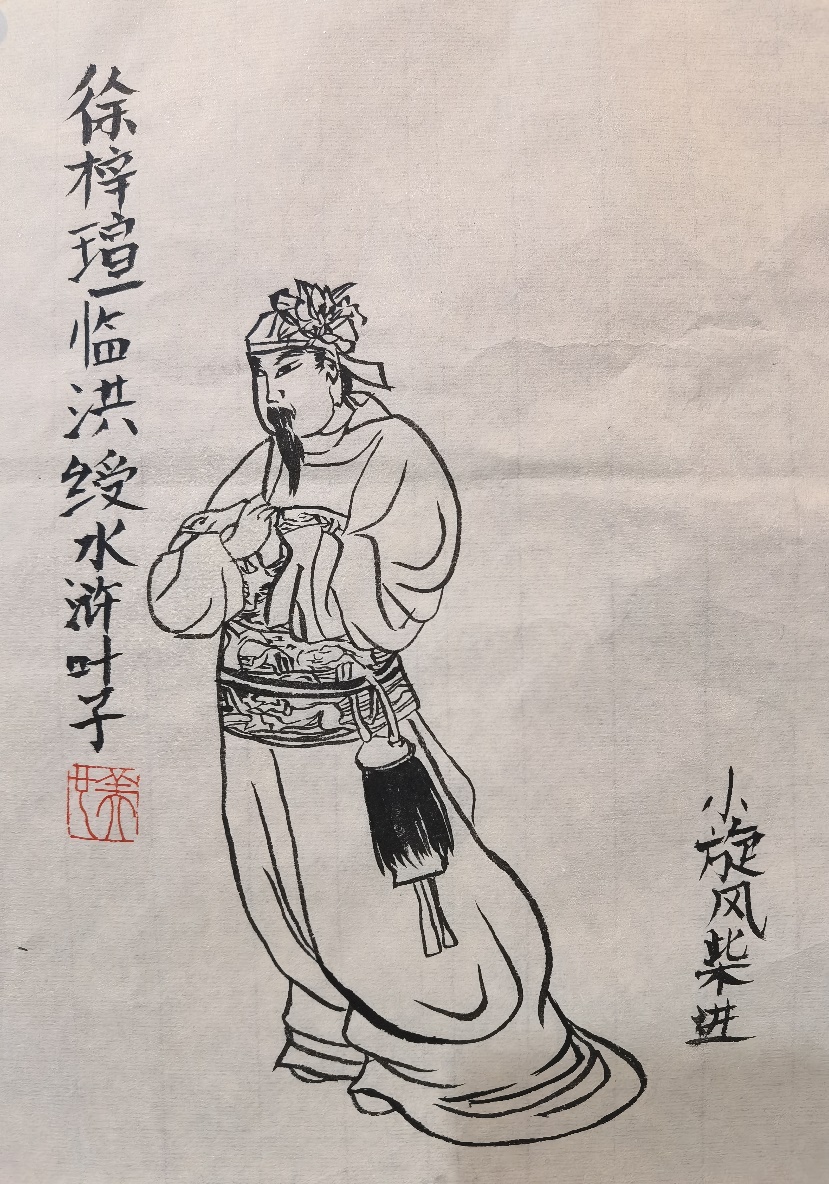 徐梓瑄临洪绶水浒叶子
小旋风柴进